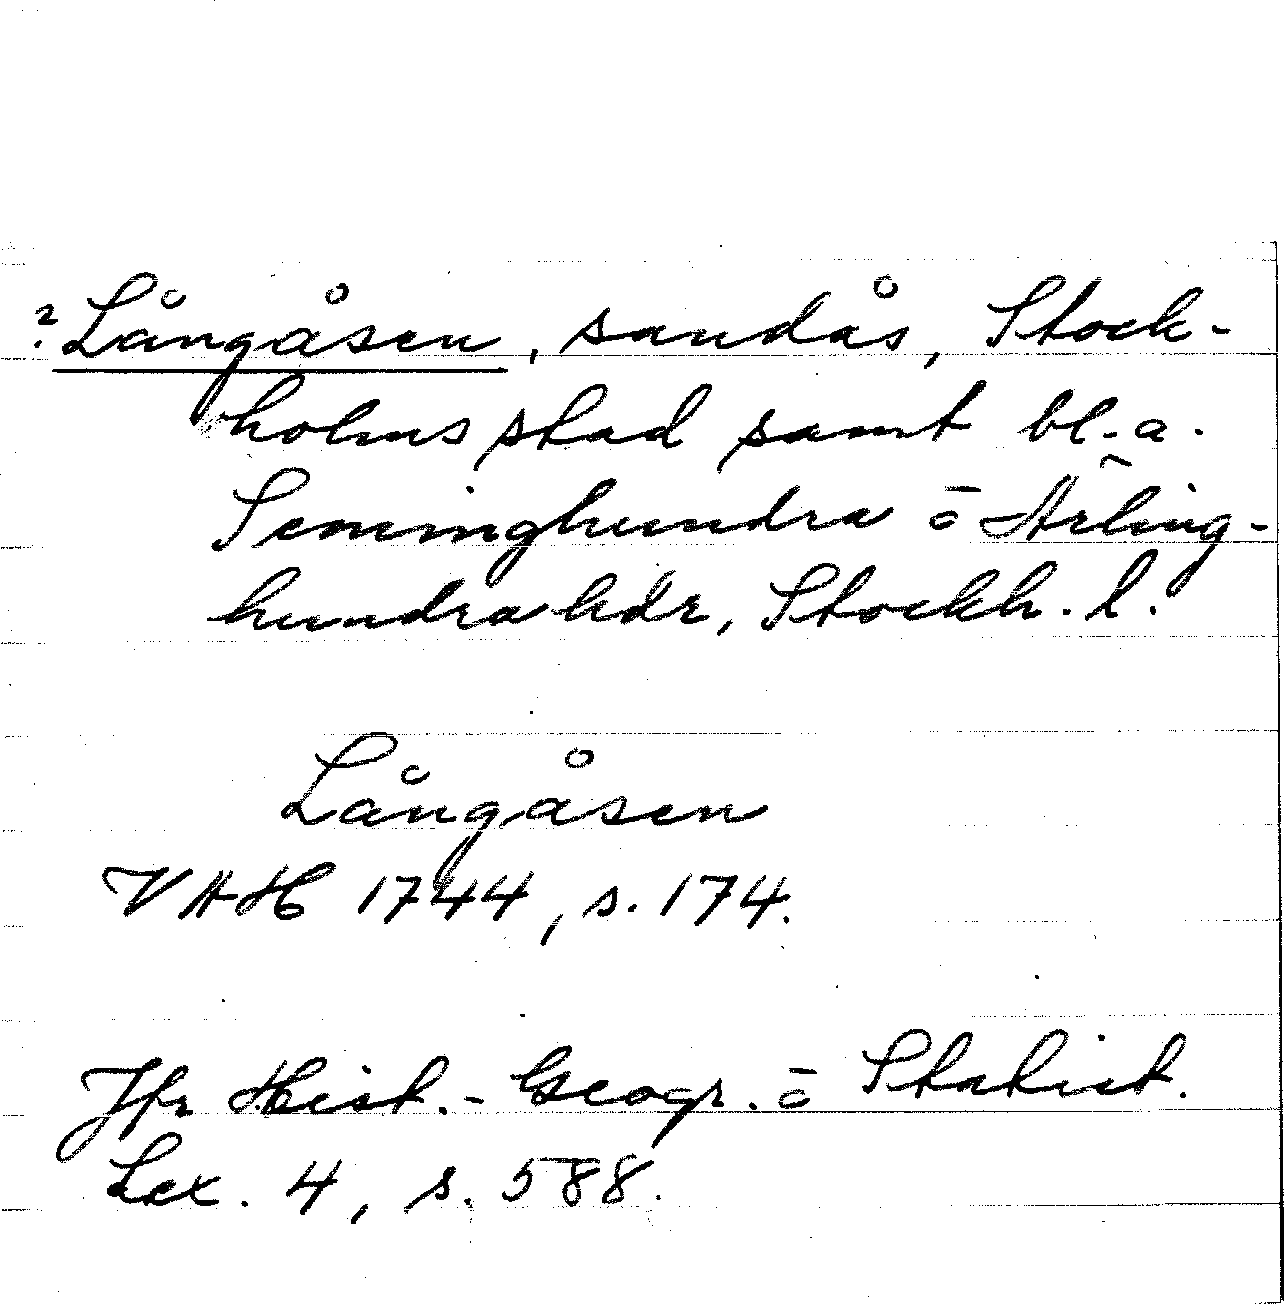 ? Långåsen, sandås, Stock-
holms stad samt bl.a.
Seminghundra o Ärling-
hundra hdr, Stockh. l.
Långåsen
VAH 1744, s. 174.
Jfr Hist.-Geogr. o Statist.
Lex. 4, s. 588.